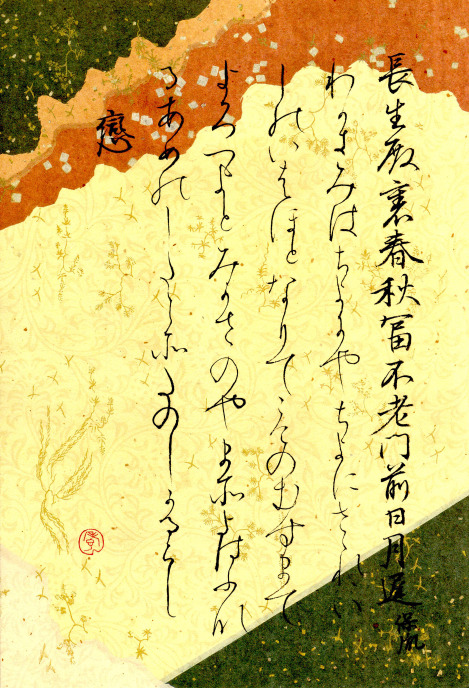 長生殿裏春秋富不老門前日月遅 保胤
わかきみはちよにやちよにさゝれい
しのいはほとなりてこけのむすまて
よろつよとみかさのやまそよはふな
るあめのしたこそたのしかるらし
戀